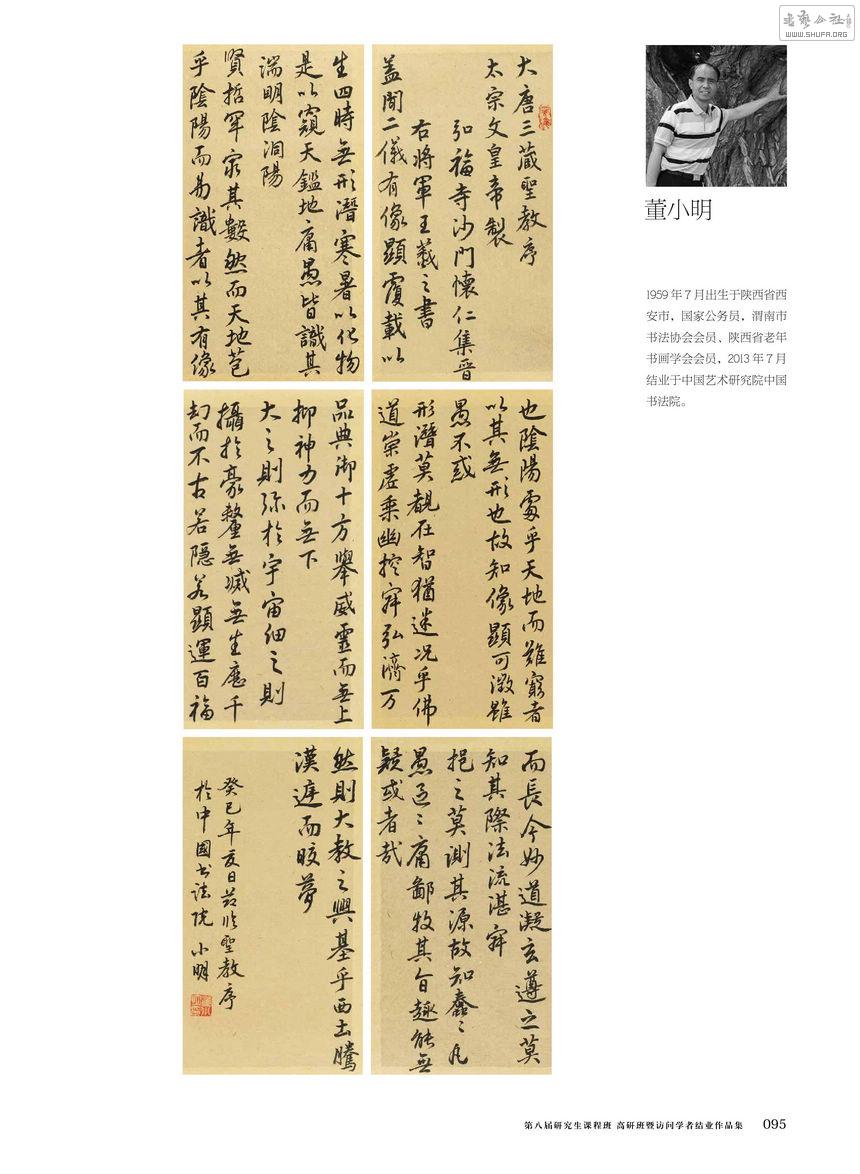 書藝公社
WWW.SHUFA.ORG
大唐三藏聖教序
太宗文皇帝製
弘福寺沙門懷仁集晉
右將軍王羲之書
蓋聞二儀有像顯覆載以
生四時無形潛寒暑以化物
是以窺天鑑地庸愚皆識其
端明陰洞陽
賢哲罕窮其數然而天地苞
乎陰陽而易識者以其有像
也陰陽處乎天地而難窮者
以其無形也故知像顯可徵雖
愚不惑
形潛莫覩在智猶迷況乎佛
道崇虛乘幽控寂弘濟万
品典御十方舉威靈而無上
抑神力而無下
大之則弥於宇宙細之則
攝於豪釐無滅無生歷千
劫而不古若隱若顯運百福
而長今妙道凝玄遵之莫
知其際法流湛寂
挹之莫測其源故知蠢〻凡
愚區〻庸鄙投其旨趣能無
疑或者哉
然則大教之興基乎西土騰
漢庭而皎夢
癸巳年夏日節臨聖教序
於中國书法院小明
董小明
1959 年 7 月出生于陕西省西
安市，国家公务员，渭南市
书法协会会员、陕西省老年
书画学会会员，2013 年 7 月
结业于中国艺术研究院中国
书法院。
第八届研究生课程班 高研班暨访问学者结业作品集 095